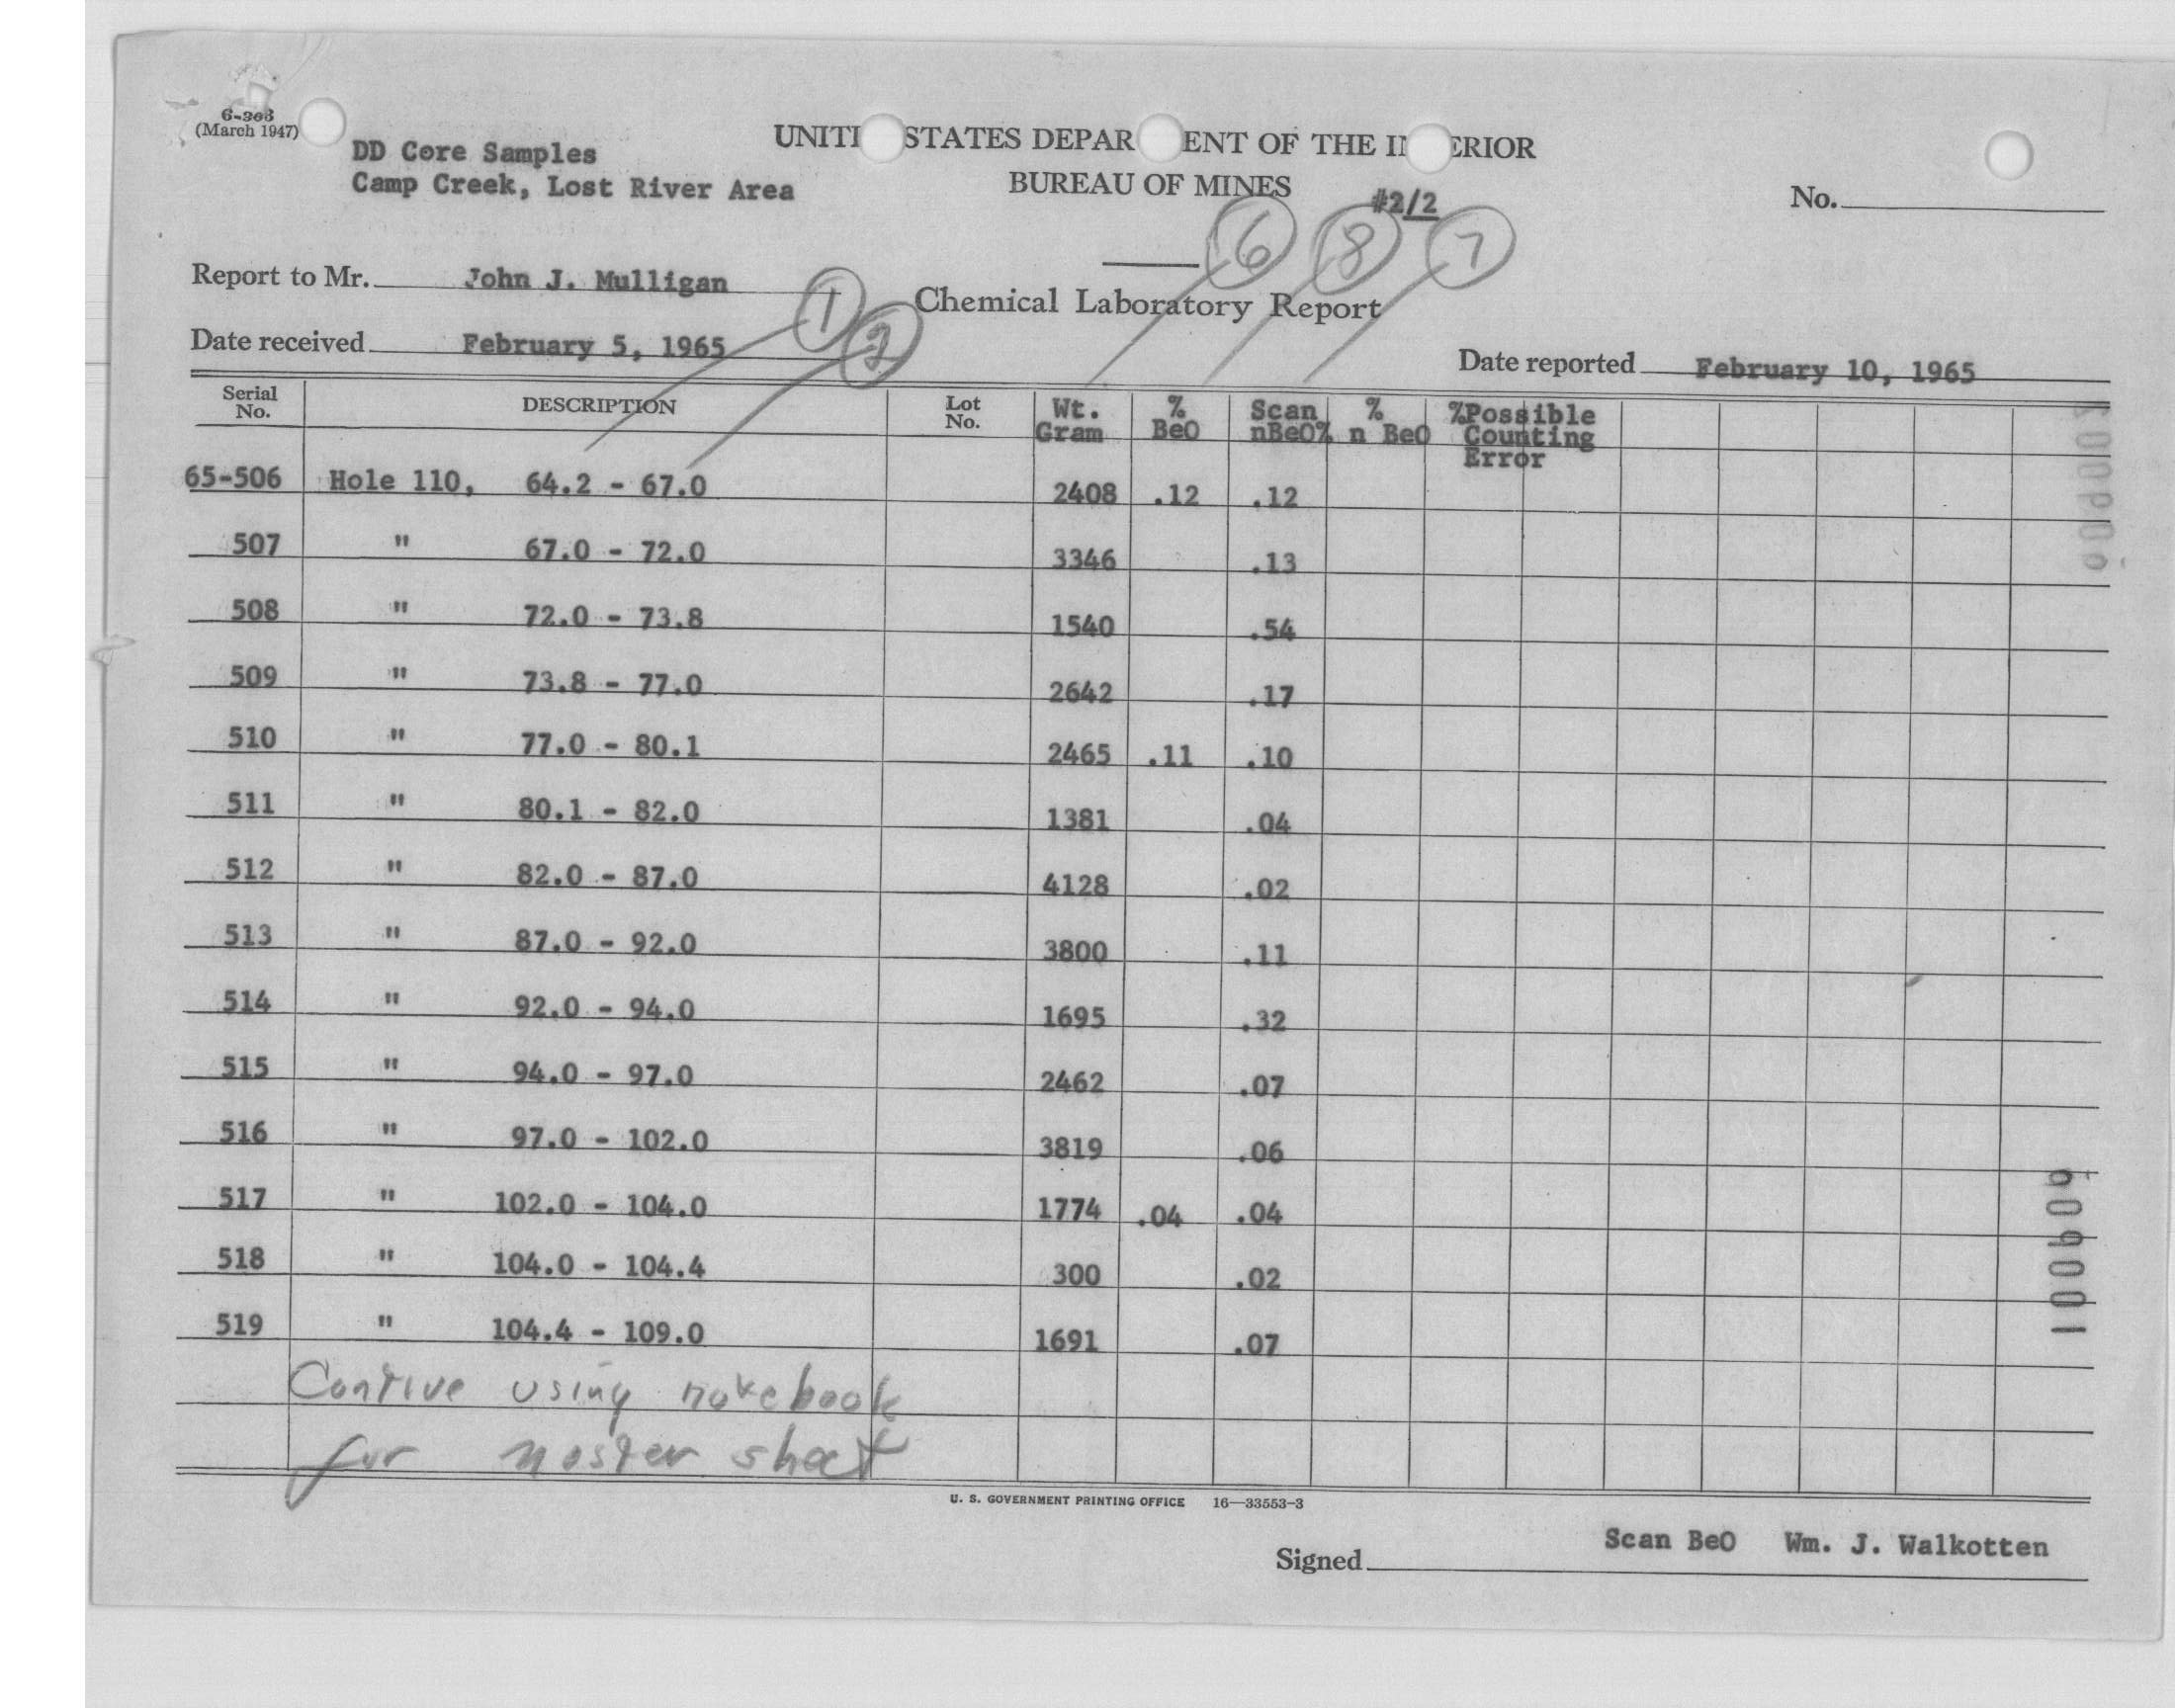 6-303
(March 1947)
DD Core Samples
Camp Creek, Lost River Area
UNITE STATES DEPAR ENT OF THE IN ERIOR
BUREAU OF MINES
#2/2
No.
6 8 7
Report to Mr. John J. Mulligan
1
Chemical Laboratory Report
2
Date received February 5, 1965
Date reported February 10, 1965
Serial No. DESCRIPTION Lot No. Wt. Gram % BeO Scan nBeO% % n BeO %Possible Counting Error
65-506 Hole 110, 64.2 - 67.0 2408 .12 .12
507 " 67.0 - 72.0 3346 .13
508 " 72.0 - 73.8 1540 .54
509 " 73.8 - 77.0 2642 .17
510 " 77.0 - 80.1 2465 .11 .10
511 " 80.1 - 82.0 1381 .04
512 " 82.0 - 87.0 4128 .02
513 " 87.0 - 92.0 3800 .11
514 " 92.0 - 94.0 1695 .32
515 " 94.0 - 97.0 2462 .07
516 " 97.0 - 102.0 3819 .06
517 " 102.0 - 104.0 1774 .04 .04
518 " 104.0 - 104.4 300 .02
519 " 104.4 - 109.0 1691 .07
using notebook
for master sheet
U. S. GOVERNMENT PRINTING OFFICE 16—33553-3
Signed Scan BeO Wm. J. Walkotten